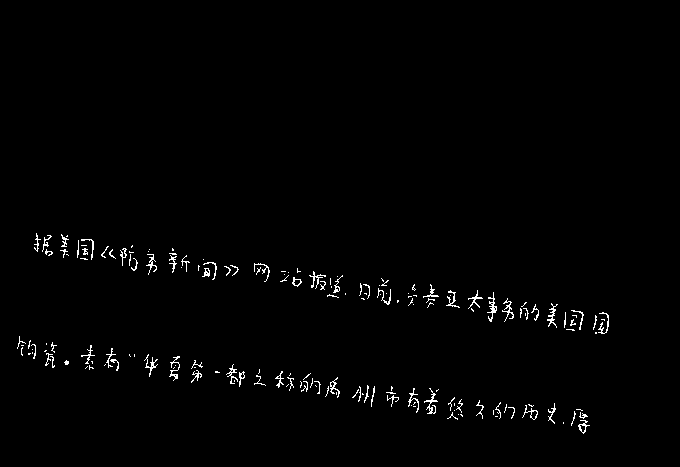 据美国《防务新闻》网站报道.日前.负责亚太事务的美国国
钧瓷。素有“华夏第一都之称的禹州市有着悠久的历史.厚